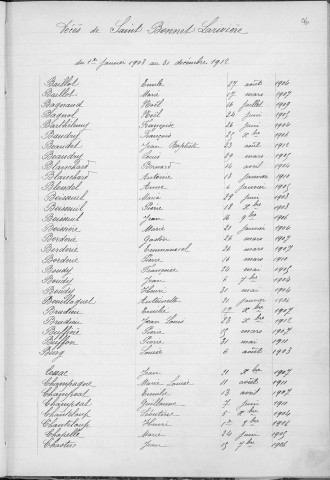 Décès de Saint Bonnet Larivière
du 1er janvier 1903 au 31 décembre 1912
Baillot Emile 27 août 1904
Baillot Marie 17 mars 1907
Bagnaud Noël 14 juillet 1909
Blagnol Noël 24 juin 1905
Barthélemy Françoise 26 juin 1904
Baudry François 27 xbre 1908
Beaudet Jean Baptiste 23 août 1912
Beaudry Louis 29 mars 1905
Blanchard Bernard 14 avril 1904
Blanchard Antoine 13 janvier 1910
Blondel Anne 6 janvier 1905
Boisseuil Maria 29 juin 1903
Boisseuil Pierre 18 xbre 1903
Boisseuil Jean 16 9bre 1906
Boissière Marie 21 janvier 1904
Borderie Gaston 26 mars 1907
Borderie Emmanuel 26 mars 1907
Borderie Pierre 16 mars 1910
Boudy Françoise 24 mai 1905
Boudy Jean 6 7bre 1904
Boudy Henri 31 mai 1904
Bouillaguet Antoinette 21 janvier 1904
Brudieu Emilie 17 xbre 1907
Brudieu Jean Louis 23 xbre 1912
Buffière Pierre 15 mars 1907
Buffon Pierre 31 mai 1911
Burg Louise 6 août 1903
Cessac Jean 21 xbre 1907
Champagne Marie Louise 11 août 1911
Champsat Emilie 13 avril 1907
Champsat Guillaume 7 juin 1911
Chanteloup Léontine 5 xbre 1904
Chanteloup Henri 1er 8bre 1906
Chapelle Marie 24 juin 1905
Chastus Jean 15 7bre 1906